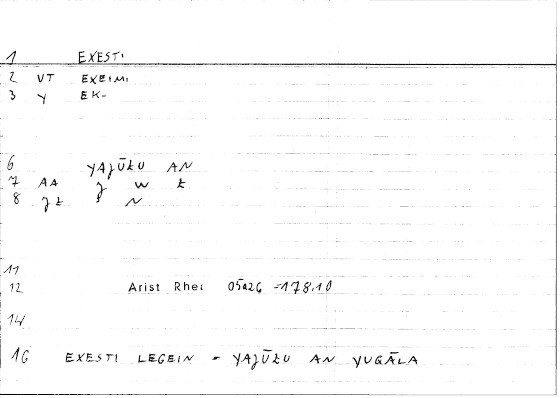 1 EXESTI
2 VT EXEIMI
3 Y EK-
6 YAJŪZU AN
7 AA J W Z
8 JZ I N
11
12 Arist Rhet 05a26 =178.10
14
16 EXESTI LEGEIN = YAJŪZU AN YUQĀLA